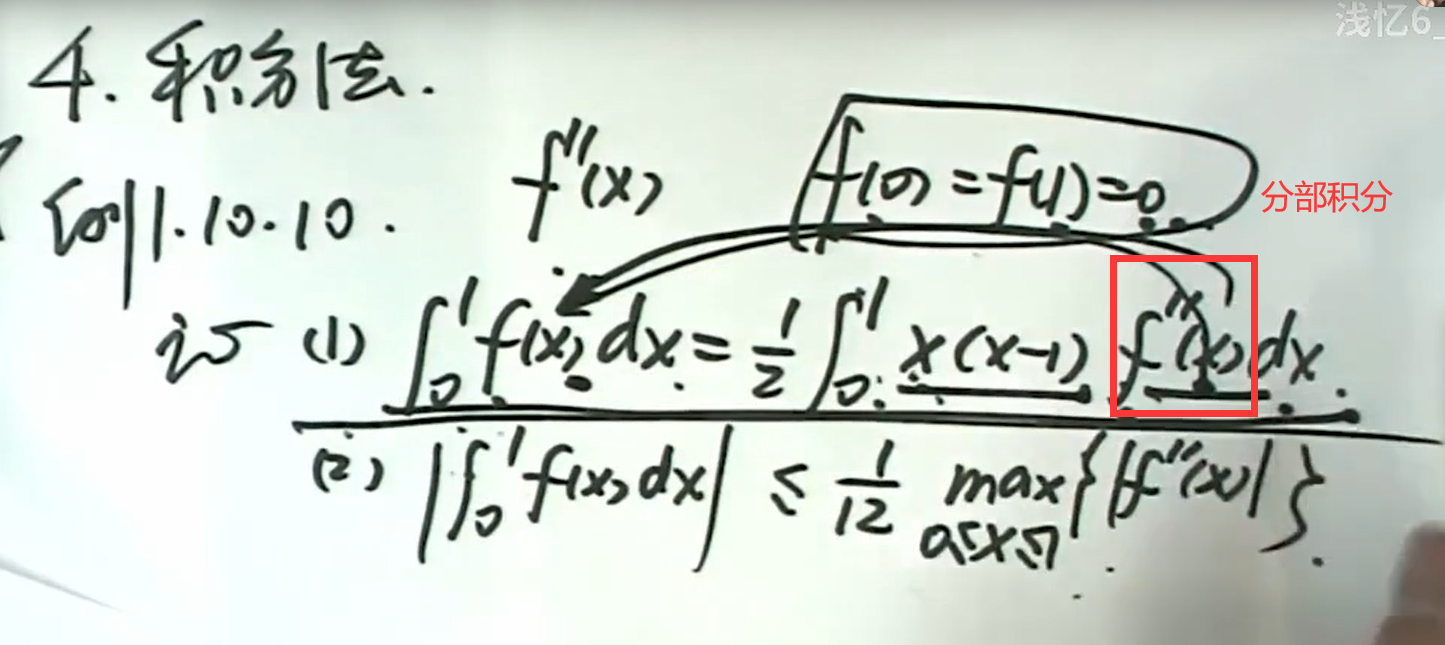 浅忆6_
4. 积分法.
例1.10.10. f''(x) f(0)=f(1)=0 分部积分
证 (1) ∫₀¹ f(x)dx = 1/2 ∫₀¹ x(x-1) f''(x)dx.
(2) |∫₀¹ f(x)dx| ≤ 1/12 max{|f''(x)|}.
0≤x≤1